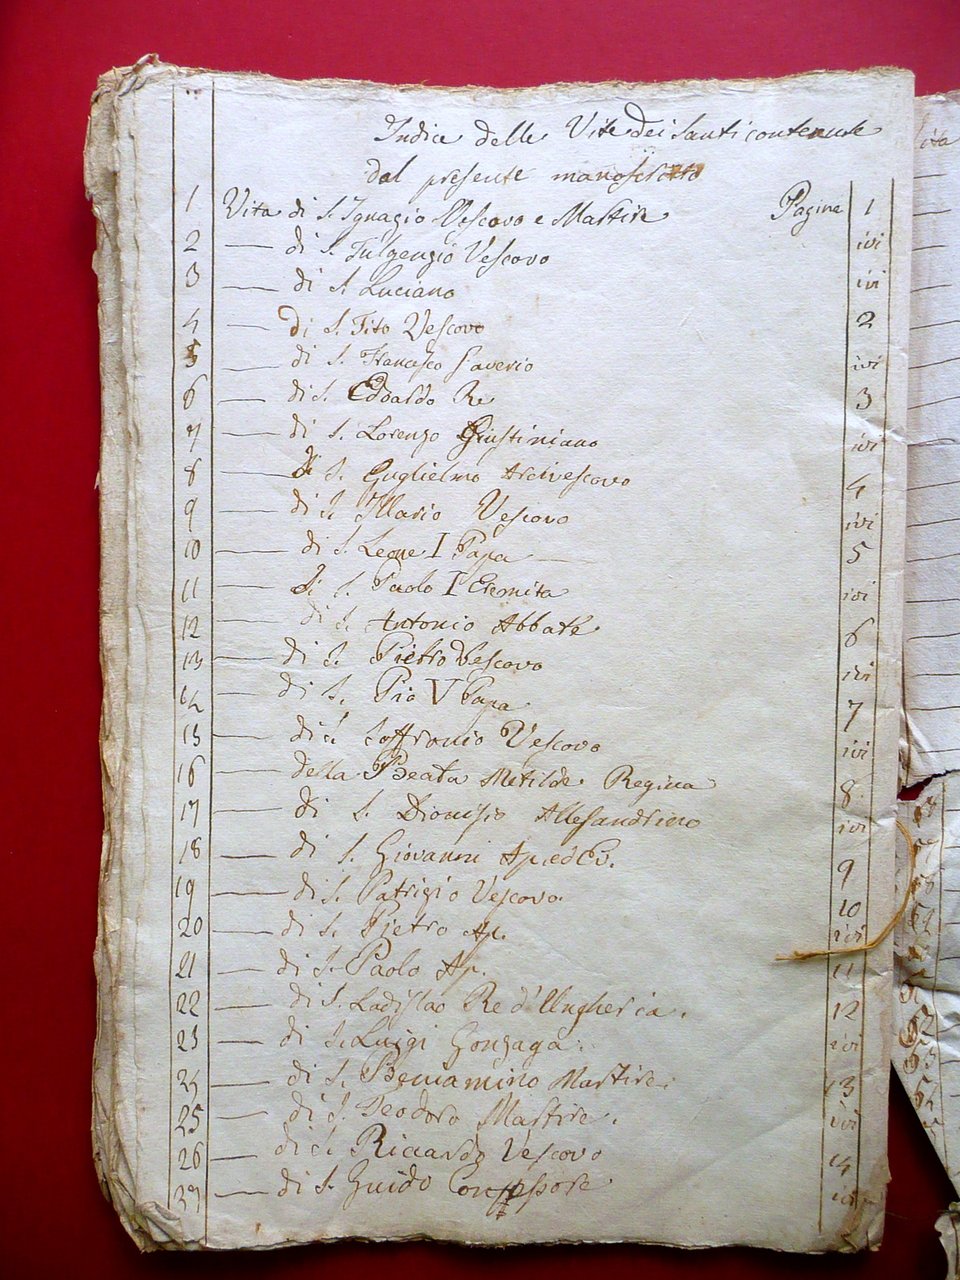 Indice delle Vite dei Santi contenute
dal presente manoscritto
1 Vita di S. Ignazio Vescovo e Martire Pagina 1
2 — di S. Fulgenzio Vescovo ivi
3 — di S. Luciano ivi
4 — di S. Tito Vescovo 2
5 — di S. Francesco Saverio ivi
6 — di S. Edoardo Re 3
7 — di S. Lorenzo Giustiniano ivi
8 — di S. Guglielmo Arcivescovo 4
9 — di S. Illario Vescovo ivi
10 — di S. Leone I Papa — 5
11 — di S. Paolo I Eremita ivi
12 — di S. Antonio Abbate 6
13 — di S. Pietro Vescovo ivi
14 — di S. Pio V Papa 7
15 — di S. Soffronio Vescovo ivi
16 — della Beata Metilde Regina 8
17 — di S. Dionisio Allesandrino ivi
18 — di S. Giovanni Ap. ed Ev. 9
19 — di S. Patrizio Vescovo. 10
20 — di S. Pietro Ap. ivi
21 — di S. Paolo Ap. 11
22 — di S. Ladislao Re d'Ungheria. 12
23 — di S. Luigi Gonzaga. ivi
24 — di S. Beniamino Martire. 13
25 — di S. Teodoro Martire. ivi
26 — di S. Riccardo Vescovo 14
27 — di S. Guido Confessore ivi